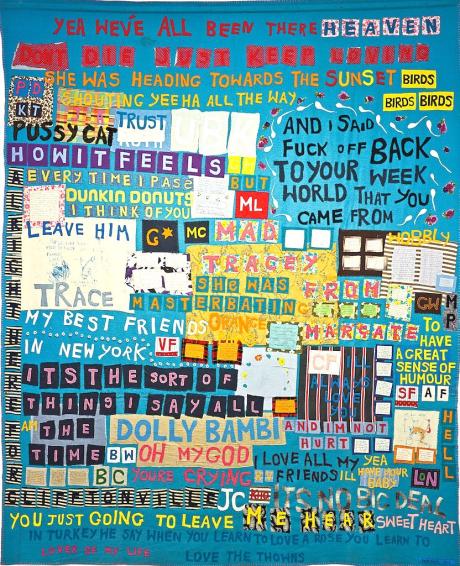 YEA WEVE ALL BEEN THERE HEAVEN
DONT DIE JUST KEEP LOVING
SHE WAS HEADING TOWARDS THE SUNSET BIRDS
SHOUTING YEE HA ALL THE WAY
BIRDS BIRDS
PD
KIT
TRUST
PUSSY CAT
AND I SAID
FUCK OFF BACK
TO YOUR WEEK
WORLD THAT YOU
CAME FROM
HOW IT FEELS
EVERY TIME I PASS
BUT
DUNKIN DONUTS
I THINK OF YOU
ML
LEAVE HIM
G★ MC MAD
TRACEY
SHE WAS
FROM
TRACE
MASTERBATING
GW
MP
MY BEST FRIENDS
ORANGE
MARGATE
TO
HAVE
IN NEW YORK
VF
A GREAT
SENSE OF
HUMOUR
CF
ITS THE SORT OF
ALWAYS
LOVE
YOU
SF AF
THING I SAY ALL
HELL
AM THE
DOLLY BAMBI
AND IM NOT
HURT
TIME BW OH MY GOD
I LOVE ALL MY
YEA
BC YOURE CRYING
FRIENDS ILL
HAVE YOUR
BABY
LON
CLIFFTONVILLE
JC
ITS NO BIG DEAL
YOU JUST GOING TO LEAVE
ME HEAR
SWEET HEART
IN TURKEY HE SAY WHEN YOU LEARN TO LOVE A ROSE YOU LEARN TO
LOVER OF MY LIFE
LOVE THE THOWNS
ALRIGHT HERE
FOR